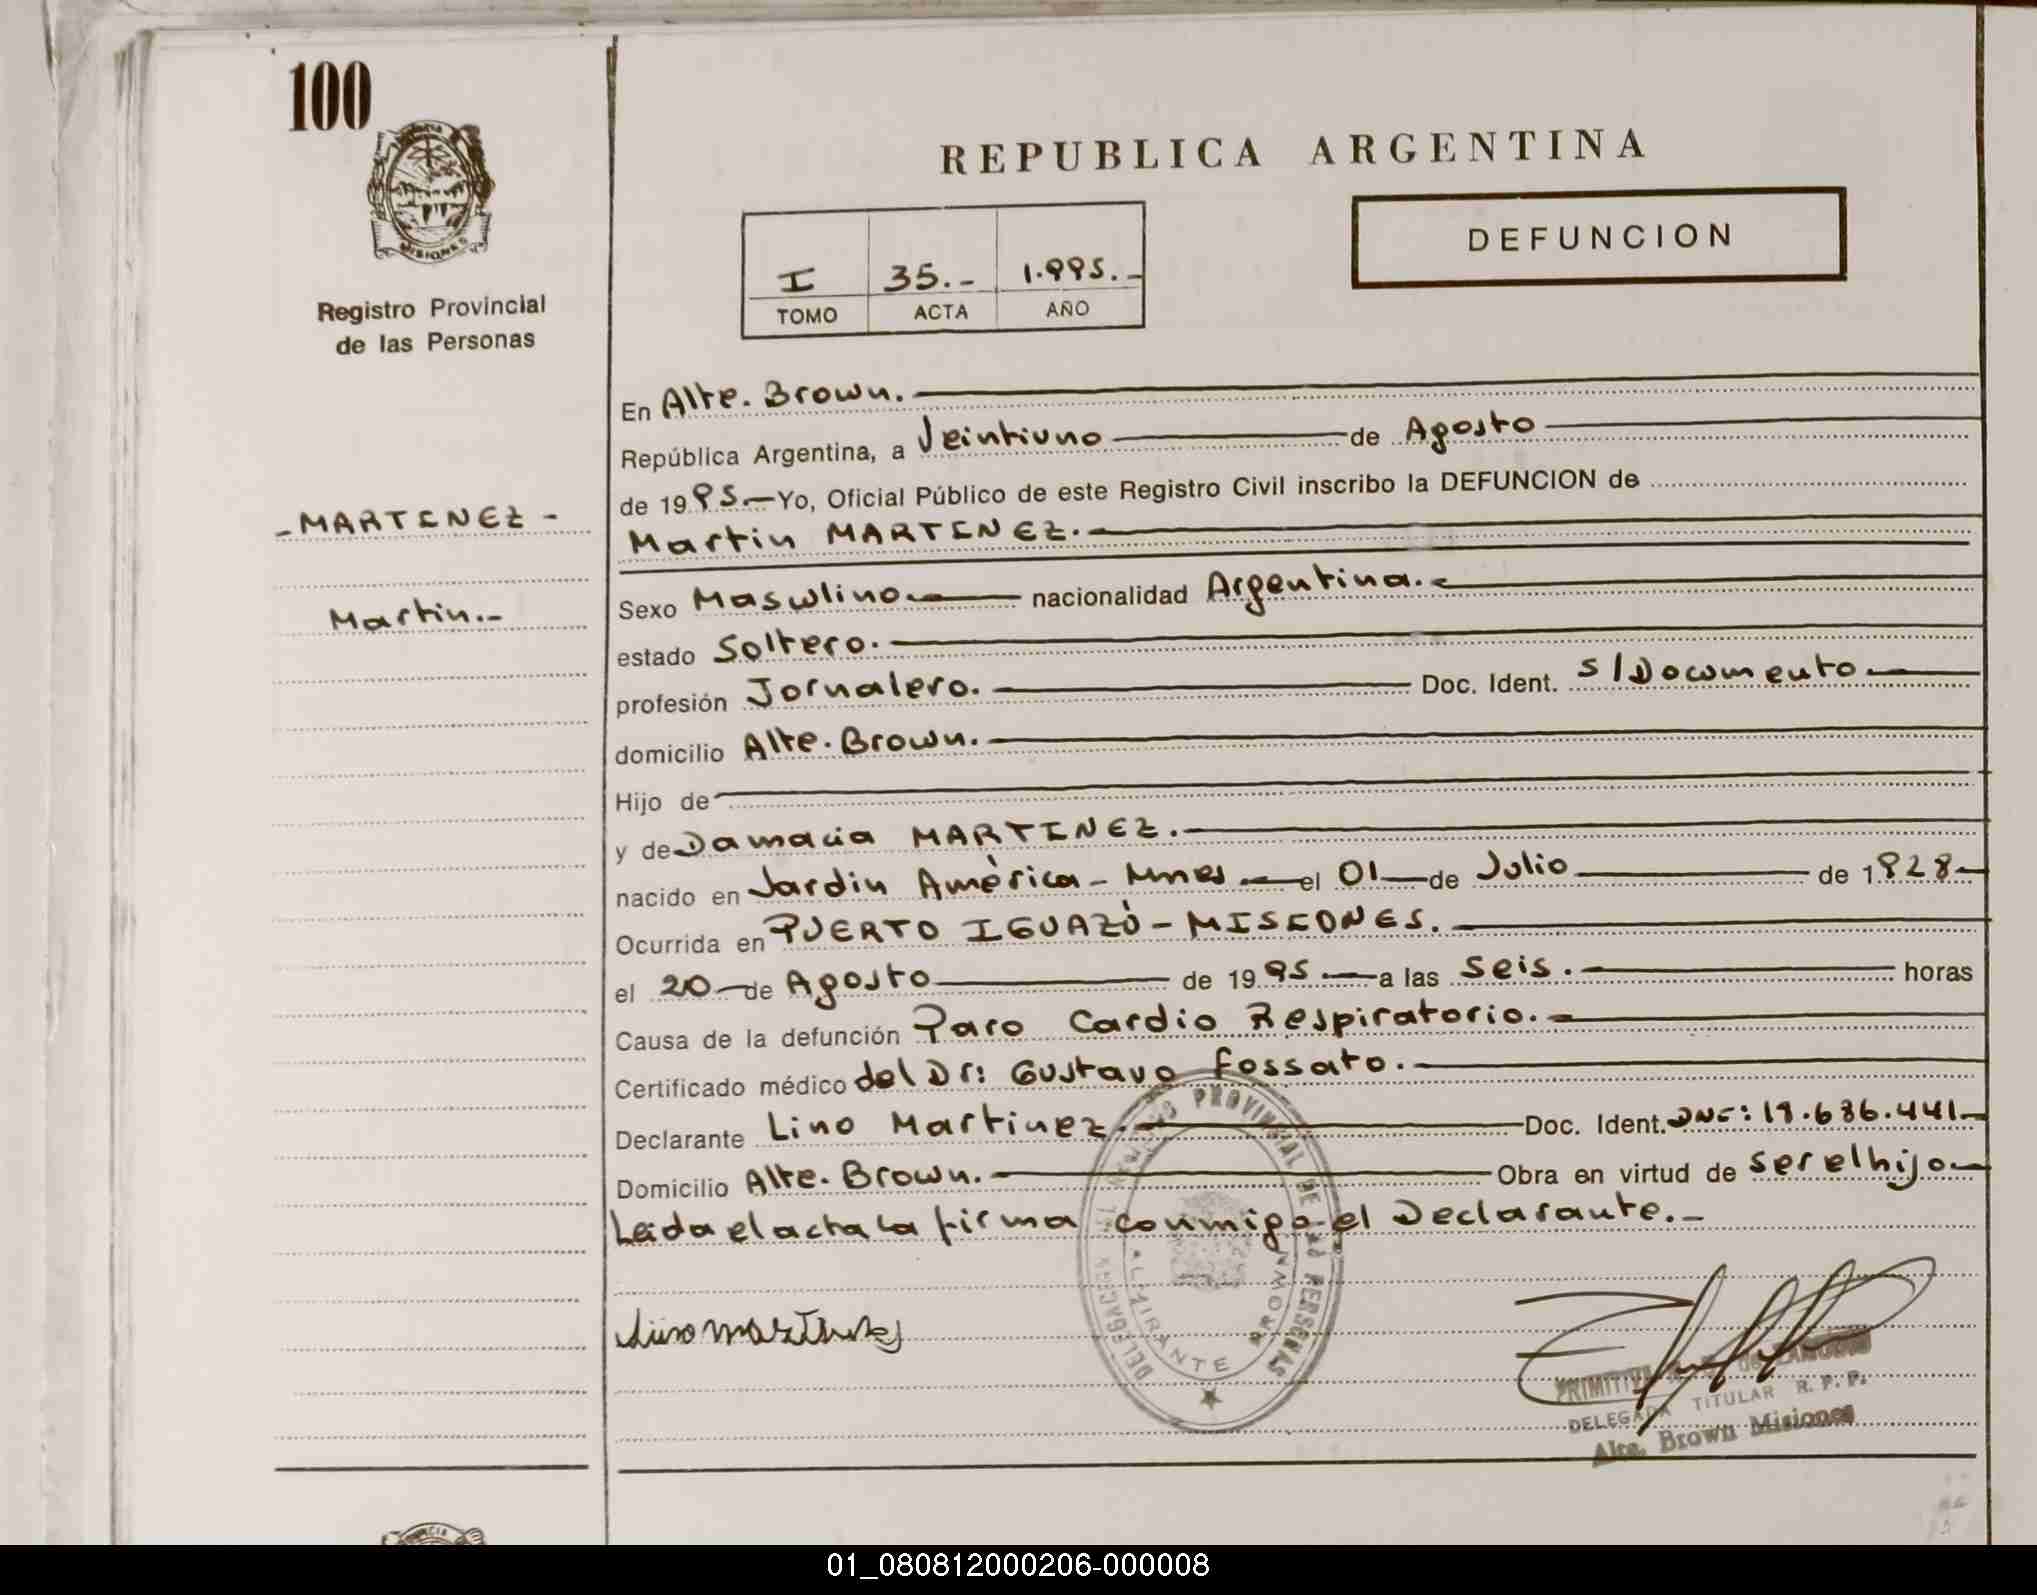 100
MISIONES
Registro Provincial
de las Personas
- MARTINEZ -
Martin.-
REPUBLICA ARGENTINA
DEFUNCION
I 35.- 1.995.-
TOMO ACTA AÑO
En Alte. Brown.
República Argentina, a Veintiuno de Agosto
de 1995.- Yo, Oficial Público de este Registro Civil inscribo la DEFUNCION de
Martin MARTINEZ.
Sexo Masculino nacionalidad Argentina.
estado Soltero.
profesión Jornalero. Doc. Ident. S/Documento
domicilio Alte. Brown.
Hijo de
y de Damacia MARTINEZ.
nacido en Jardin América - Mnes el 01 de Julio de 1928
Ocurrida en PUERTO IGUAZÚ - MISIONES.
el 20 de Agosto de 1995 a las Seis. horas
Causa de la defunción Paro Cardio Respiratorio.
Certificado médico del Dr: Gustavo Fossato.
Declarante Lino Martinez. Doc. Ident. DNI: 18.686.441
Domicilio Alte. Brown. Obra en virtud de ser el hijo
Leida el acta la firma conmigo el Declarante.-
Lino Martinez
REGISTRO PROVINCIAL DE LAS PERSONAS
DELEGACION
ALMIRANTE BROWN
DELEGADA TITULAR R. P. P.
Alte. Brown Misiones
01_080812000206-000008